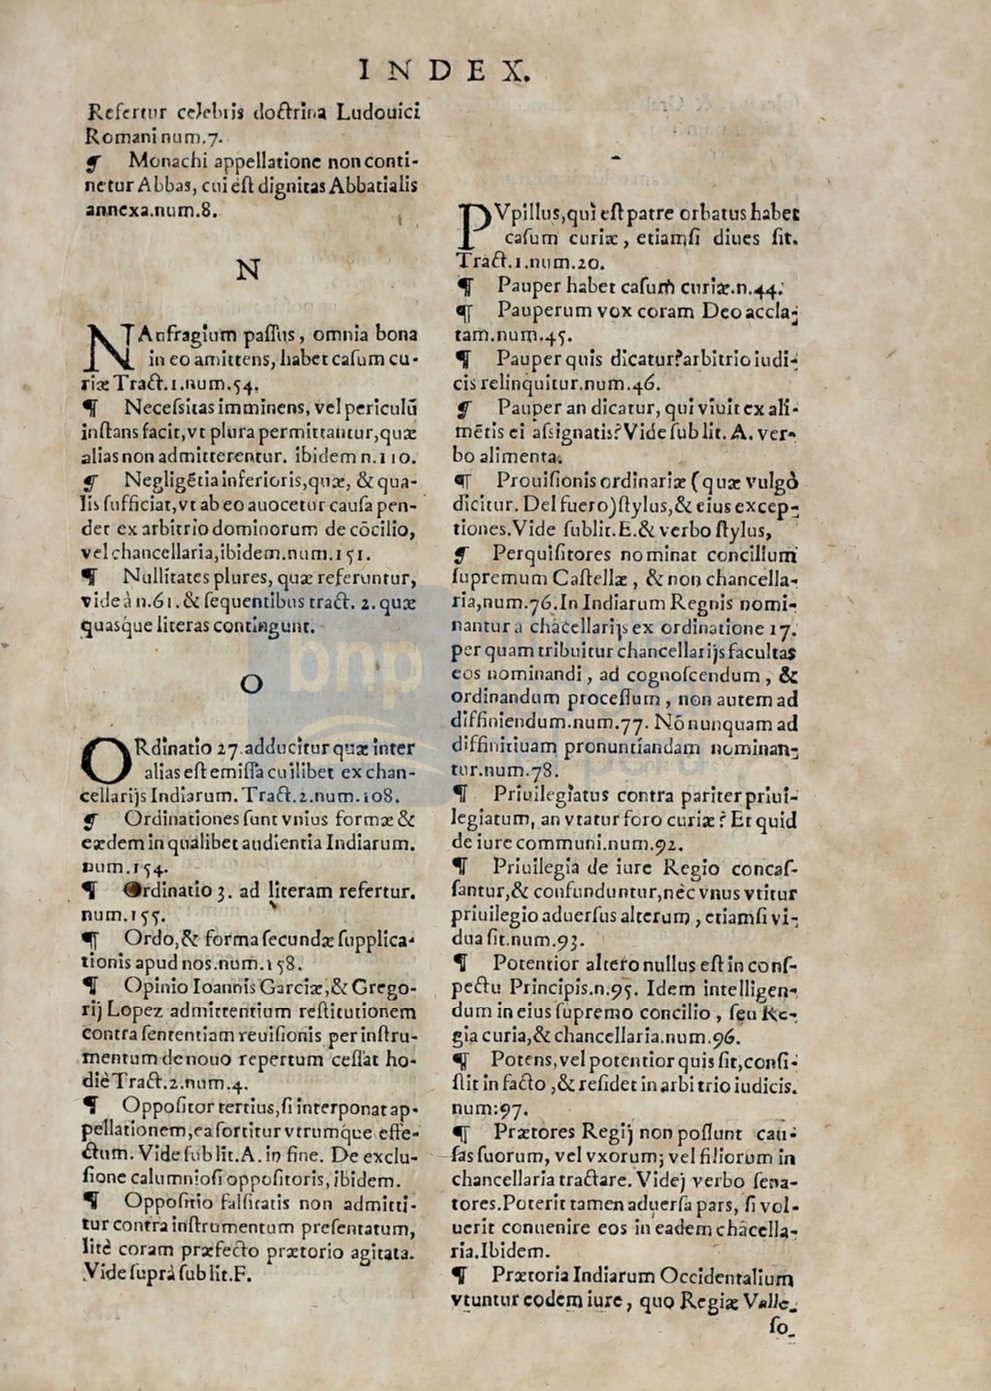 INDEX.
Refertur celebris doctrina Ludouici
Romani num.7.
¶ Monachi appellatione non conti-
netur Abbas, cui est dignitas Abbatialis
annexa.num.8.
N
NAufragium passus, omnia bona
in eo amittens, habet casum cu-
riæ Tract.1.num.54.
¶ Necessitas imminens, vel periculū
instans facit, vt plura permittantur, quæ
alias non admitterentur. ibidem n.110.
¶ Negligētia inferioris, quæ, & qua-
lis sufficiat, vt ab eo auocetur causa pen-
det ex arbitrio dominorum de cōcilio,
vel chancellaria, ibidem.num.151.
¶ Nullitates plures, quæ referuntur,
vide à n.61. & sequentibus tract. 2. quæ
quasque literas contingunt.
O
ORdinatio 27.adducitur quæ inter
alias est emissa cuilibet ex chan-
cellarijs Indiarum. Tract.2.num.108.
¶ Ordinationes sunt vnius formæ &
eædem in qualibet audientia Indiarum.
num.154.
¶ Ordinatio 3. ad literam refertur.
num.155.
¶ Ordo, & forma secundæ supplica-
tionis apud nos.num.158.
¶ Opinio Ioannis Garciæ, & Grego-
rij Lopez admittentium restitutionem
contra sententiam reuisionis per instru-
mentum de nouo repertum cessat ho-
diè Tract.2.num.4.
¶ Oppositor tertius, si interponat ap-
pellationem, ea sortitur vtrumque effe-
ctum. Vide sub lit. A. in fine. De exclu-
sione calumniosi oppositoris, ibidem.
¶ Oppositio falsitatis non admitti-
tur contra instrumentum presentatum,
lite coram præfecto prætorio agitata.
Vide suprà sub lit.F.
PVpillus, qui est patre orbatus habet
casum curiæ, etiamsi diues sit.
Tract.1.num.20.
¶ Pauper habet casum curiæ.n.44.
¶ Pauperum vox coram Deo accla-
tam.num.45.
¶ Pauper quis dicatur? arbitrio iudi-
cis relinquitur.num.46.
¶ Pauper an dicatur, qui viuit ex ali-
mētis ei assignatis? Vide sub lit. A. ver-
bo alimenta.
¶ Prouisionis ordinariæ (quæ vulgò
dicitur. Del fuero) stylus, & eius excep-
tiones. Vide sub lit.E.& verbo stylus,
¶ Perquisitores nominat concilium
supremum Castellæ, & non chancella-
ria, num.76. In Indiarum Regnis nomi-
nantur a chācellarijs ex ordinatione 17.
per quam tribuitur chancellarijs facultas
eos nominandi, ad cognoscendum, &
ordinandum processum, non autem ad
diffiniendum.num.77. Nōnunquam ad
diffinitiuam pronuntiandam nominan-
tur.num.78.
¶ Priuilegiatus contra pariter priui-
legiatum, an vtatur foro curiæ? Et quid
de iure communi.num.92.
¶ Priuilegia de iure Regio concas-
santur, & confunduntur, nec vnus vtitur
priuilegio aduersus alterum, etiamsi vi-
dua sit.num.93.
¶ Potentior altero nullus est in cons-
pectu Principis.n.95. Idem intelligen-
dum in eius supremo concilio, seu Re-
gia curia, & chancellaria.num.96.
¶ Potens, vel potentior quis sit, consi-
stit in facto, & residet in arbitrio iudicis.
num:97.
¶ Prætores Regij non possunt cau-
sas suorum, vel vxorum; vel filiorum in
chancellaria tractare. Videj verbo sena-
tores. Poterit tamen aduersa pars, si vol-
uerit conuenire eos in eadem chācella-
ria. Ibidem.
¶ Prætoria Indiarum Occidentalium
vtuntur eodem iure, quo Regiæ Valle-
so-
bnp